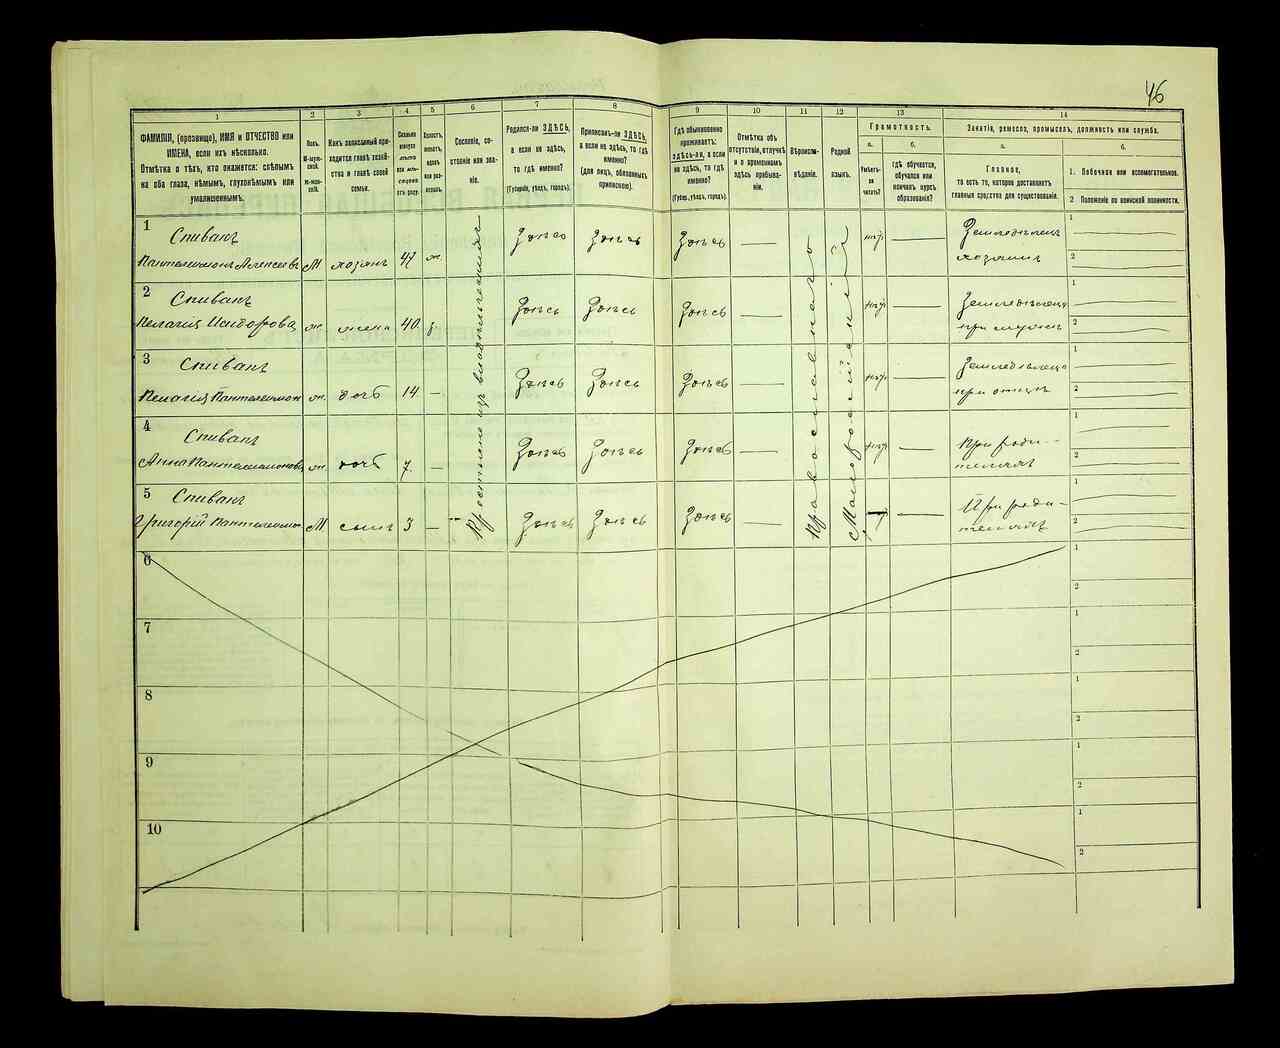 46
1 2 3 4 5 6 7 8 9 10 11 12 13 14
ФАМИЛІЯ, (прозвище), ИМЯ и ОТЧЕСТВО или
ИМЕНА, если ихъ нѣсколько.
Отмѣтка о тѣхъ, кто окажется: слѣпымъ
на оба глаза, нѣмымъ, глухонѣмымъ или
умалишеннымъ.
Полъ.
М-муж-
ской.
Ж-жен-
скій.
Какъ записанный при-
ходится главѣ хозяй-
ства и главѣ своей
семьи.
Сколько
минуло
лѣтъ
или мѣ-
сяцевъ
отъ роду.
Холостъ,
женатъ,
вдовъ
или раз-
веденъ.
Сословіе, со-
стояніе или зва-
ніе.
Родился-ли ЗДѢСЬ,
а если не здѣсь,
то гдѣ именно?
(Губернія, уѣздъ, городъ).
Приписанъ-ли ЗДѢСЬ,
а если не здѣсь, то гдѣ
именно?
(для лицъ, обязанныхъ
припискою).
Гдѣ обыкновенно
проживаетъ:
здѣсь-ли, а если
не здѣсь, то гдѣ
именно?
(Губер., уѣздъ, городъ).
Отмѣтка объ
отсутствіи, отлучкѣ
и о временномъ
здѣсь пребыва-
ніи.
Вѣроиспо-
вѣданіе.
Родной
языкъ.
Грамотность.
а.
Умѣетъ-
ли
читать?
б.
гдѣ обучается,
обучался или
кончилъ курсъ
образованія?
Занятіе, ремесло, промыселъ, должность или служба.
а.
Главное,
то есть то, которое доставляетъ
главныя средства для существованія.
б.
1. Побочное или вспомогательное.
2 Положеніе по воинской повинности.
Крестьяне изъ владѣльческихъ
Православнаго
Малороссійскій
1 Спивакъ Здѣсь Здѣсь Здѣсь — нѣтъ — Земледѣлецъ 1
Пантелеимонъ Алексѣевъ М хозяинъ 47 ж. хозяинъ 2
2 Спивакъ Здѣсь Здѣсь Здѣсь — нѣтъ — 1
Пелагія Исидорова ж. жена 40. при мужѣ 2
3 Спивакъ Здѣсь Здѣсь Здѣсь — нѣтъ — 1
Пелагія Пантелеимон ж. дочь 14. — при отцѣ 2
4 Спивакъ Здѣсь Здѣсь Здѣсь — нѣтъ — При роди- 1
Анна Пантелеимонова ж. дочь 7. — теляхъ 2
5 Спивакъ Здѣсь Здѣсь Здѣсь — — При роди- 1
Григорій Пантелеимон М сынъ 3 — теляхъ 2
6 1
2
7 1
2
8 1
2
9 1
2
10 1
2